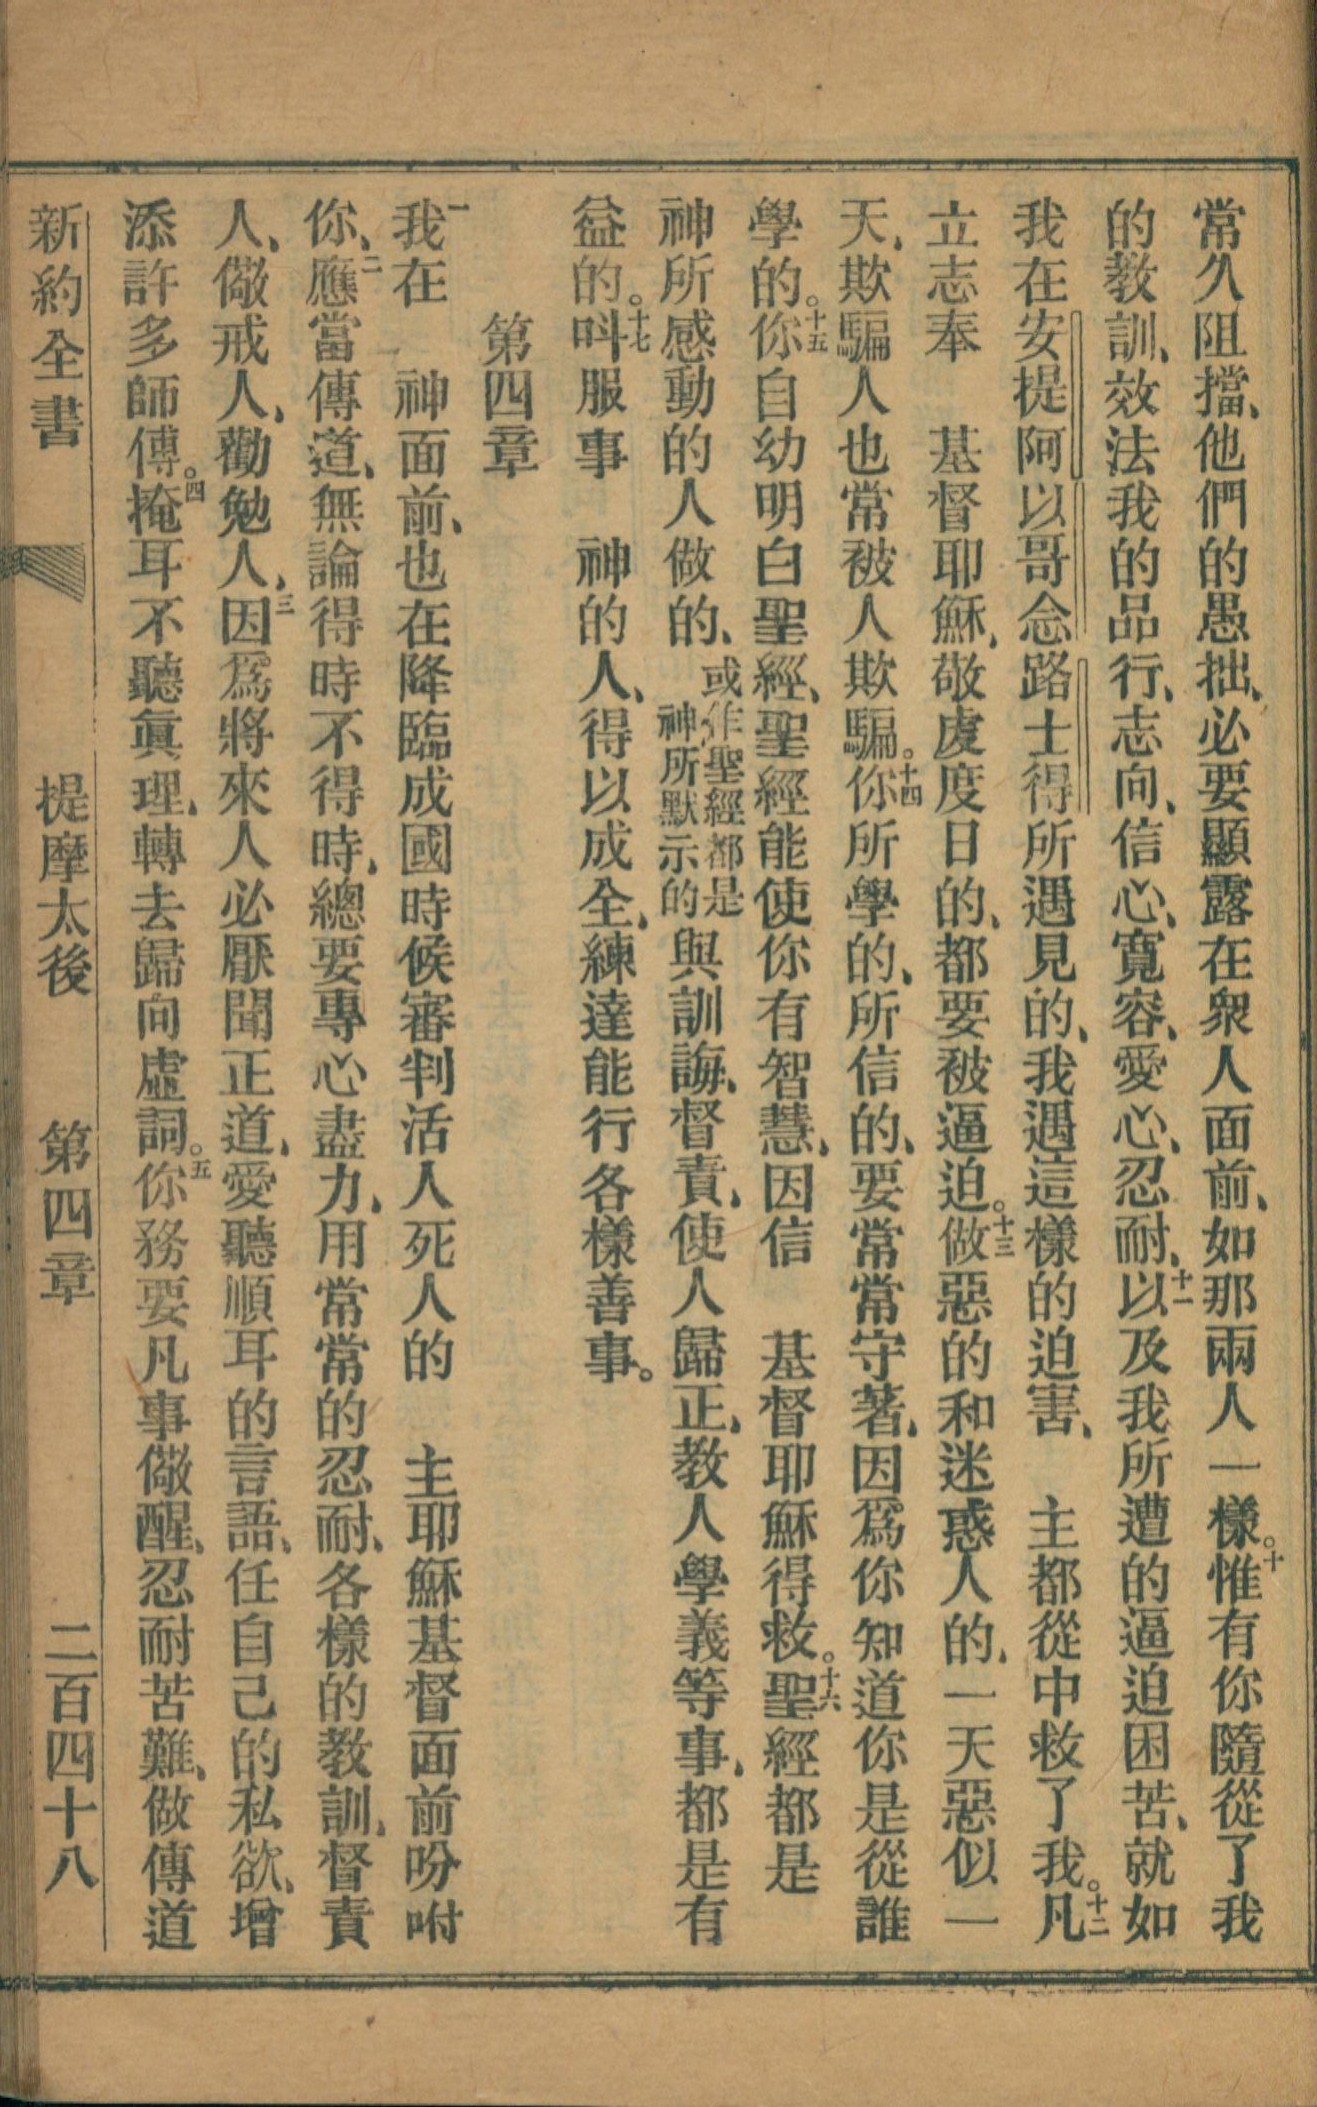 常久阻擋、他們的愚拙、必要顯露在衆人面前、如那兩人一樣。十惟有你隨從了我
的教訓、效法我的品行、志向、信心、寬容、愛心、忍耐、十一以及我所遭的逼迫困苦、就如
我在安提阿以哥念路士得所遇見的、我遇這樣的迫害、　主都從中救了我。十二凡
立志奉　基督耶穌、敬虔度日的、都要被逼迫。十三做惡的和迷惑人的、一天惡似一
天、欺騙人也常被人欺騙。十四你所學的、所信的、要常常守著、因爲你知道你是從誰
學的。十五你自幼明白聖經、聖經能使你有智慧、因信　基督耶穌得救。十六聖經都是
神所感動的人做的、或作聖經都是神所默示的與訓誨、督責、使人歸正、教人學義等事、都是有
益的。十七呌服事　神的人、得以成全、練達能行各樣善事。
第四章
一我在　神面前、也在降臨成國時候審判活人死人的　主耶穌基督面前吩咐
你、二應當傳道、無論得時不得時、總要專心盡力、用常常的忍耐、各樣的教訓、督責
人、儆戒人、勸勉人、三因爲將來人必厭聞正道、愛聽順耳的言語、任自己的私欲、增
添許多師傅。四掩耳不聽眞理、轉去歸向虛詞。五你務要凡事儆醒、忍耐苦難、做傳道
新約全書　提摩太後　第四章　二百四十八